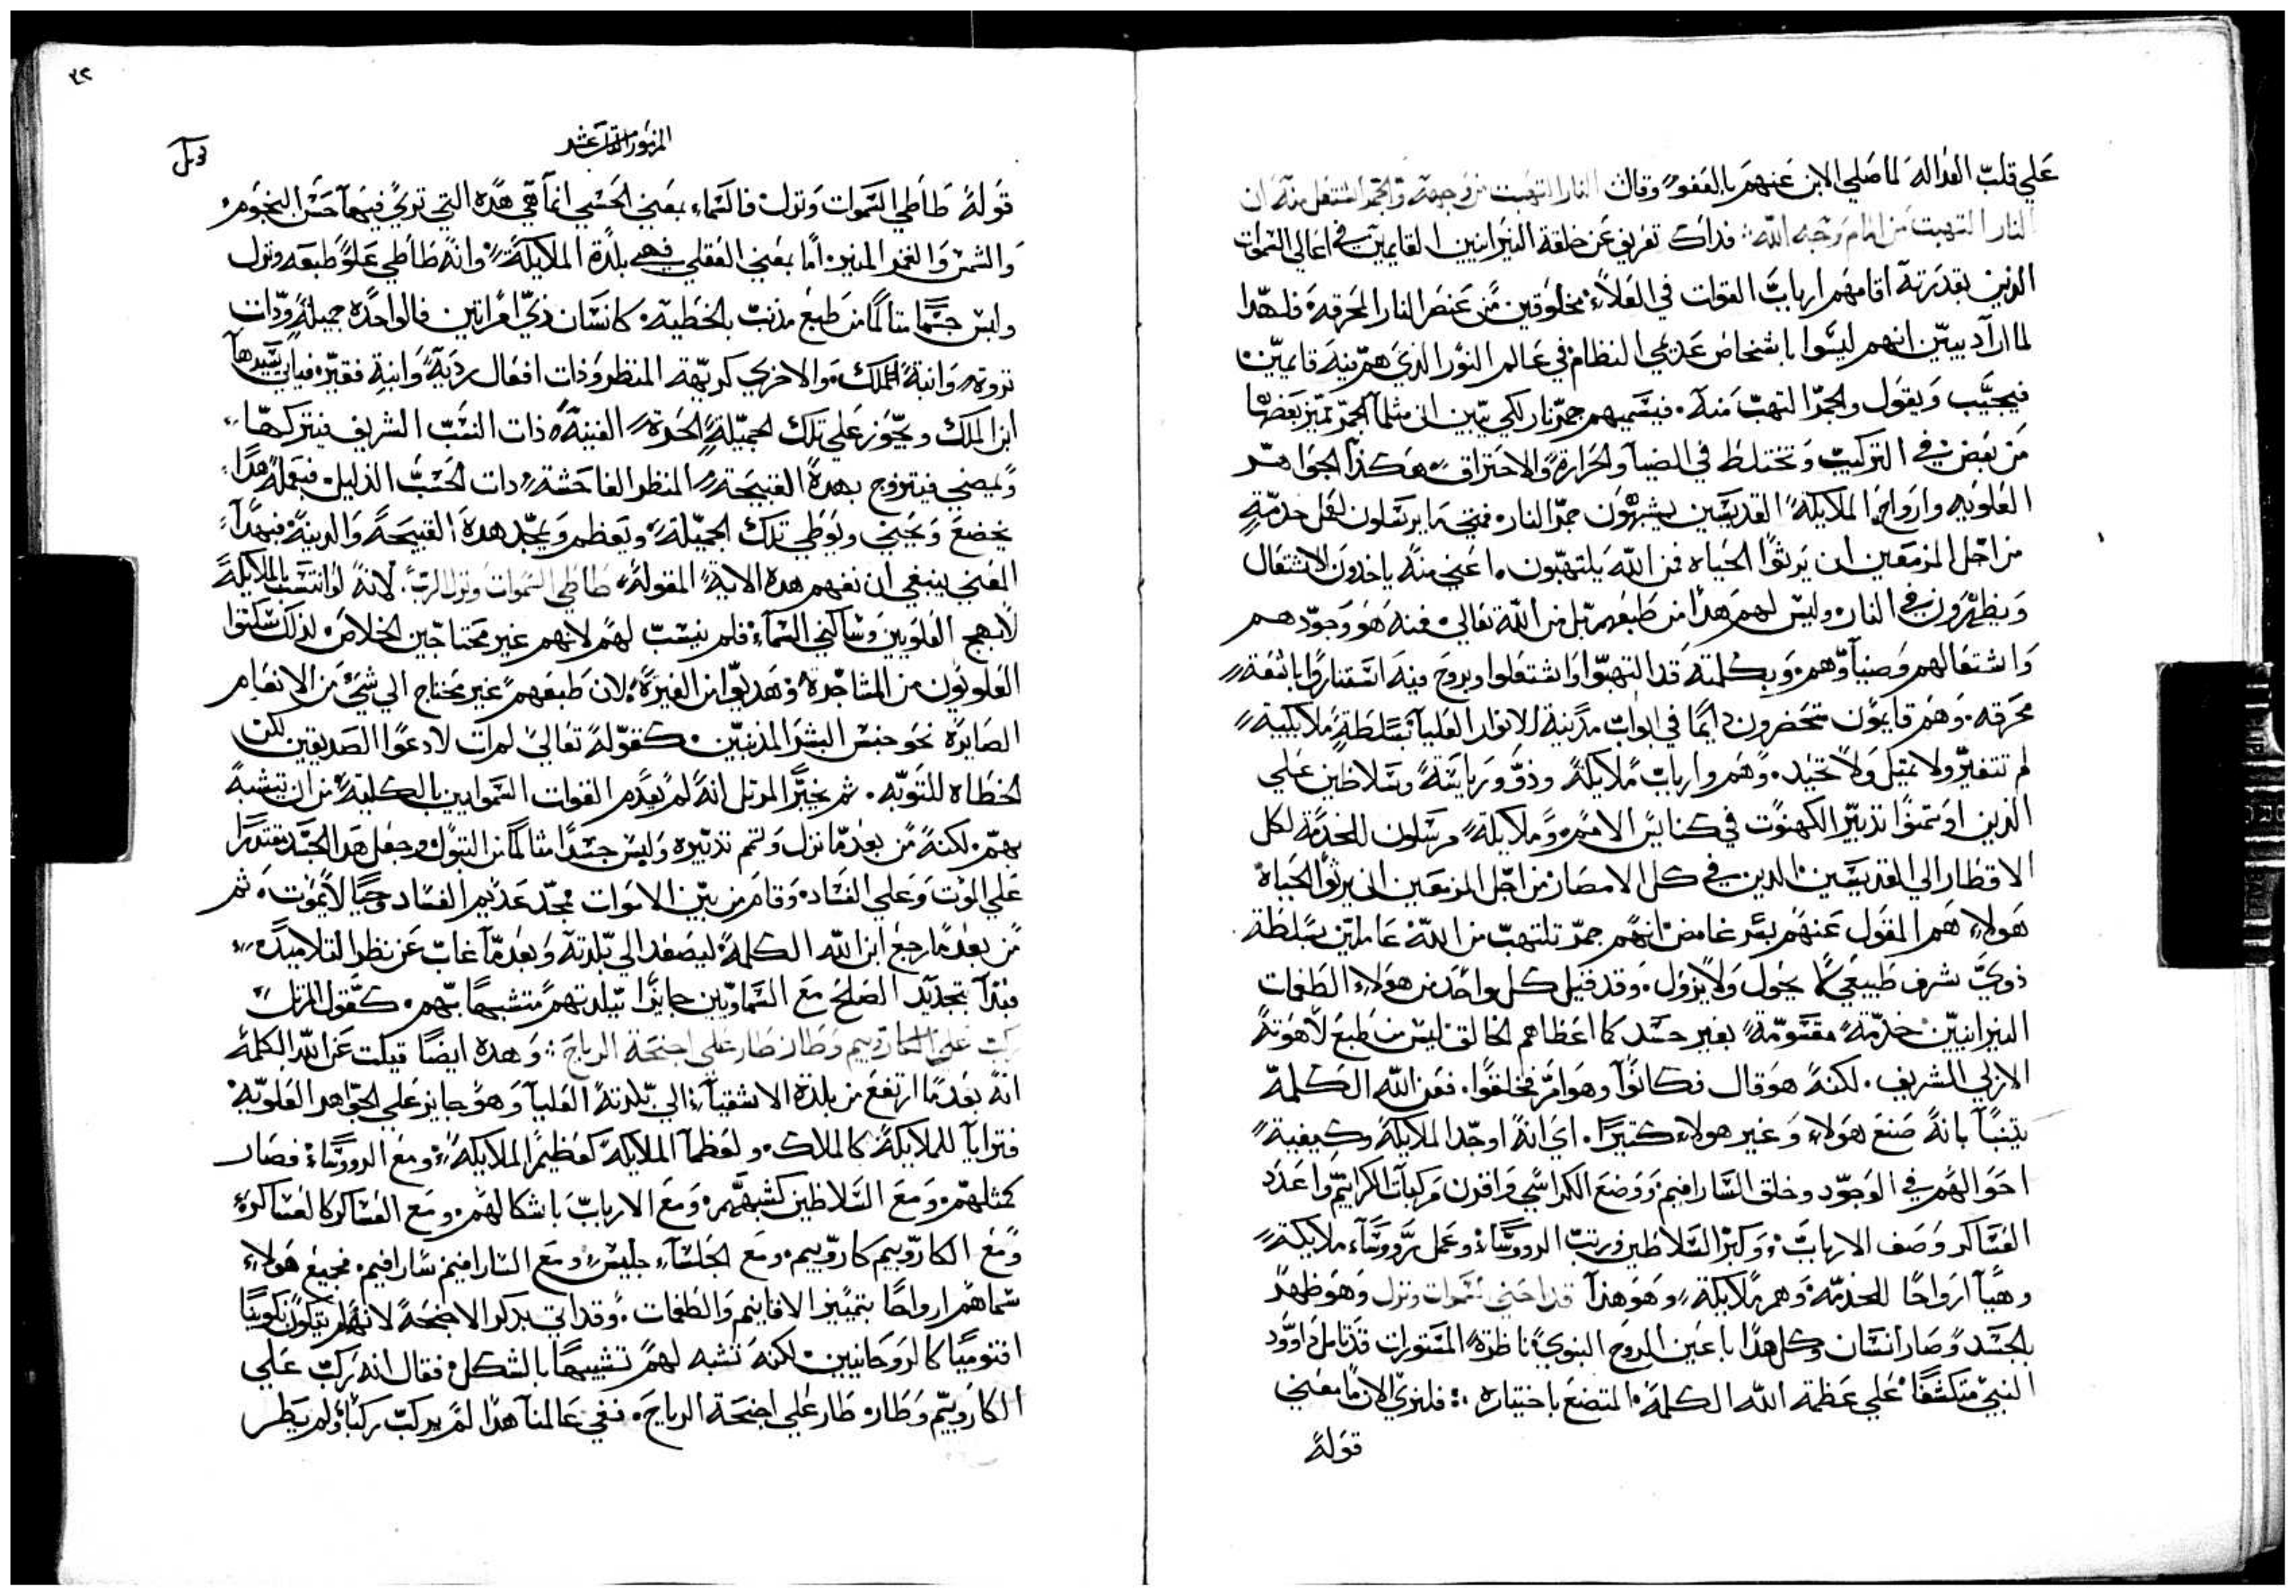 علي قلب العداله لما صلي الابن عنهم بالعفو وقال النار التهبت من وجهه والجمر اشتعل منه ان
النار التهبت من امام وجه الله فداك تعرفني عن خلقة النيرانيين القايمين في اعالي السموات
الدين بقدرته اقامهم ارباب القوات في العلاء مخلوقين من عنصر النار المحرقه فلهدا
لما اراد يبين انهم ليسوا باشخاص عديمي النظام في عالم النور الدي هم فيه قايمين
فيجيب ويقول والجمر التهب منه فيسميهم جمر نار لكي يبين ان مثلما الجمر تميز بعضها
من بعض في التركيب وتختلط في الضيا والحرارة والاحتراق هكدا الجواهر
العلويه وارواح الملايكة القديسين يشبهون جمر النار فمتي ما يرسلون لفعل خدمة
من اجل المزمعين ان يرثوا الحياه فمن الله يلتهبون اعني منه ياخدون الاشتعال
ويظهرون في النار وليس لهم هدا من طبعهم بل من الله تعالي فمنه هو وجودهم
واشتعالهم وضياوهم وبكلمته قد التهبوا واشتعلوا وبروح فيه استناروا باشعة
محرقه وهم قايمون متحضرون دايما في ابواب مدينة الانوار العليا بسلطة ملايكية
لم تتغير ولا تميل ولا تحيد وهم وارباب ملايكة ودوو رياسة وسلاطين علي
الدين اوتمنوا تدبير الكهنوت في كنايس الامم وملايكة مرسلون للخدمة لكل
الاقطار الي القديسين الدين في كل الامصار من اجل المزمعين ان يرثوا الحياة
هولاء هم المقول عنهم بسر غامض انهم جمر تلتهب من الله عاملين بسلطة
دوي شرف طبيعي لا يحول ولا يزول وقد قيل كل واحد من هولاء الطغمات
النيرانيين خدمة مقسومة بغير حسد كما اعظاهم الخالق ليس من طبع لاهوته
الازلي الشريف لكنه هو قال فكانوا وهو امر فخلقوا فعن الله الكلمة
يتنبا بانه صنع هولاء وغير هولاء كتيرا اي انه اوجد الملايكة وكيفية
احوالهم في الوجود وخلق السارافيم ووضع الكراسي واقرن مركبات الكرابيم واعدد
العساكر وصف الارباب وكبر السلاطين ورتب الرووساء وعمل رووساء ملايكة
وهيا ارواحا للخدمة وهم ملايكة وهو هدا قد احني السموات ونزل وهو ظهر
بالجسد وصار انسان وكل هدا باعين الروح النبوي ناظرة المستورات قد تامل داوود
النبي متكشفا علي عظمة الله الكلمة المتضع باختياره فلنري الان ما معني
قوله
٤٢
المزمور عشر
قوله طاطي السموات ونزل فالسماء بمعني الحسي انما هي هده التي تري فيها حسن النجوم
والشمس والقمر المنير اما بمعني العقلي فهي بلدة الملايكة وانه طاطي علو طبعه ونزل
ولبس جسما متالما من طبع مدنب بالخطية كانسان دي امراتين فالواحدة جميلة ودات
تروة وابنة الملك والاخري كريهة المنظر ودات افعال ردية وابنة فقير فياتي سيدها
ابن الملك ويجوز علي تلك الجميلة الحرة الغنية دات النسب الشريف فيتركها
ويمضي فيتزوج بهدة القبيحة المنظر الفاحشة دات الحسب الدليل فبعمله هدا
يخضع ويحني ويوطي تلك الجميلة ويعظم ويمجد هدة القبيحة والدنية فبهدا
المعني ينبغي ان نفهم هده الاية المقولة طاطي السموات ونزل الرب لانه لو انتسب بالملايكة
لابهج العلويين وساكني السماء فلم ينسب لهم لانهم غير محتاجين الخلاص لدلك سكتوا
العلويون من المشاجرة وهديوا من الغيرة لان طبعهم غير محتاج الي شي من الانعام
الصايرة نحو جنس البشر المدنبين كقوله تعالي لم ات لادعوا الصديقين لكن
الخطاه للتوبه ثم يخبر المرتل انه لم يعدم القوات السموايين بالكلية من ان يتشبه
بهم لكنه من بعد ما نزل وتمم تدبيره ولبس جسدا متالما من البتول وجعل هدا الجسد مقتدرا
علي الموت وعلي الفساد وقام من بين الاموات ممجد عديم الفساد وحيا لا يموت ثم
من بعد ما رجع ابن الله الكلمة ليصعد الي بلدته وبعد ما غاب عن نظر التلاميد
فبدا بتجديد الصلح مع السماويين جايزا ببلدتهم متشبها بهم كقول المرتل
ركب علي الكاروبيم وطار طار علي اجنحة الرياح وهده ايضا قيلت عن الله الكلمة
انه بعد ما ارتفع من بلدة الاشقياء الي بلدته العليا وهو جايز علي الجواهر العلوية
فترايا للملايكة كالملاك ولعظما الملايكة كعظيم الملايكة ومع الرووساء فصار
كمثلهم ومع السلاطين كشبههم ومع الارباب باشكالهم ومع العساكر كالعساكر
ومع الكاروبيم كاروبيم ومع الجلساء جليس ومع السارافيم سارافيم فجميع هولاء
سماهم ارواحا بتمييز الاقانيم والطغمات وقد اتي بدكر الاجنحة لانه لم يتكون تكوينا
اقنوميا كالروحانيين لكنه تشبه لهم تشبيها بالشكل فقال انه ركب علي
الكاروبيم وطار طار علي اجنحة الرياح ففي عالمنا هدا لم يركب ركبا ولم يطر